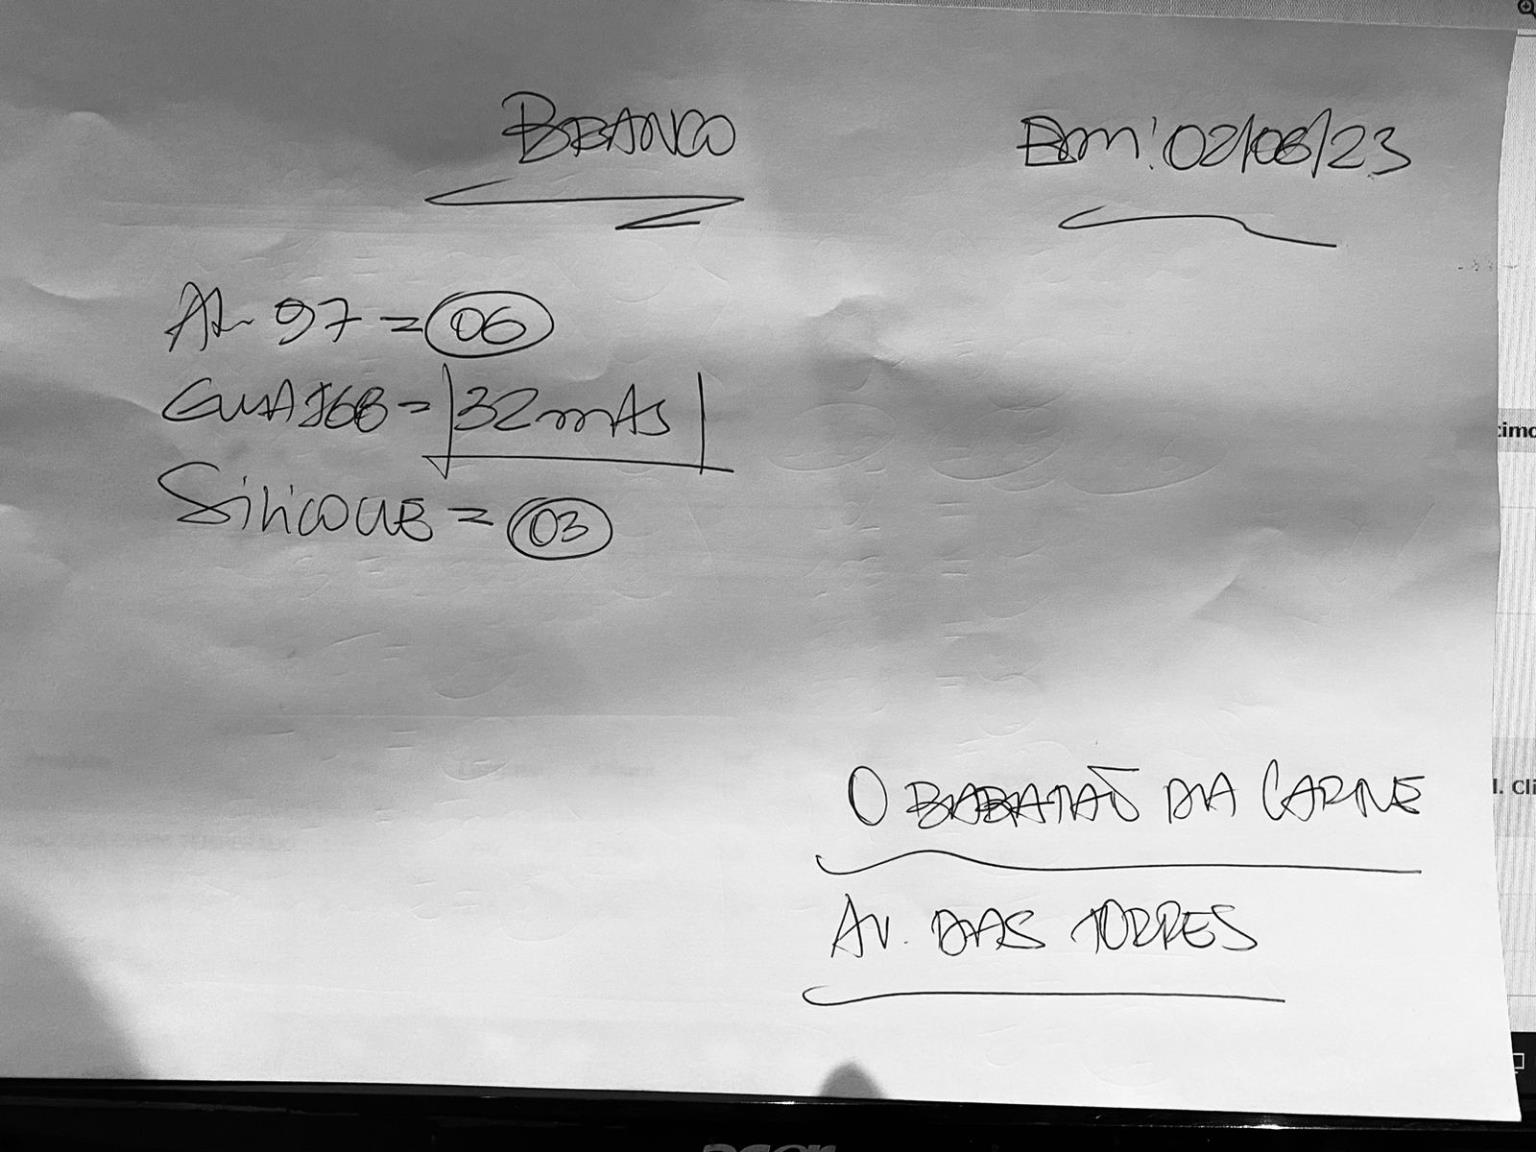 BRANCO
Em: 02/06/23
AL-97 = 06
GUA168 = 32mts
Silicone = 03
O BARATÃO DA CARNE
AV. DAS TORRES
cimo
l. Cli
acer